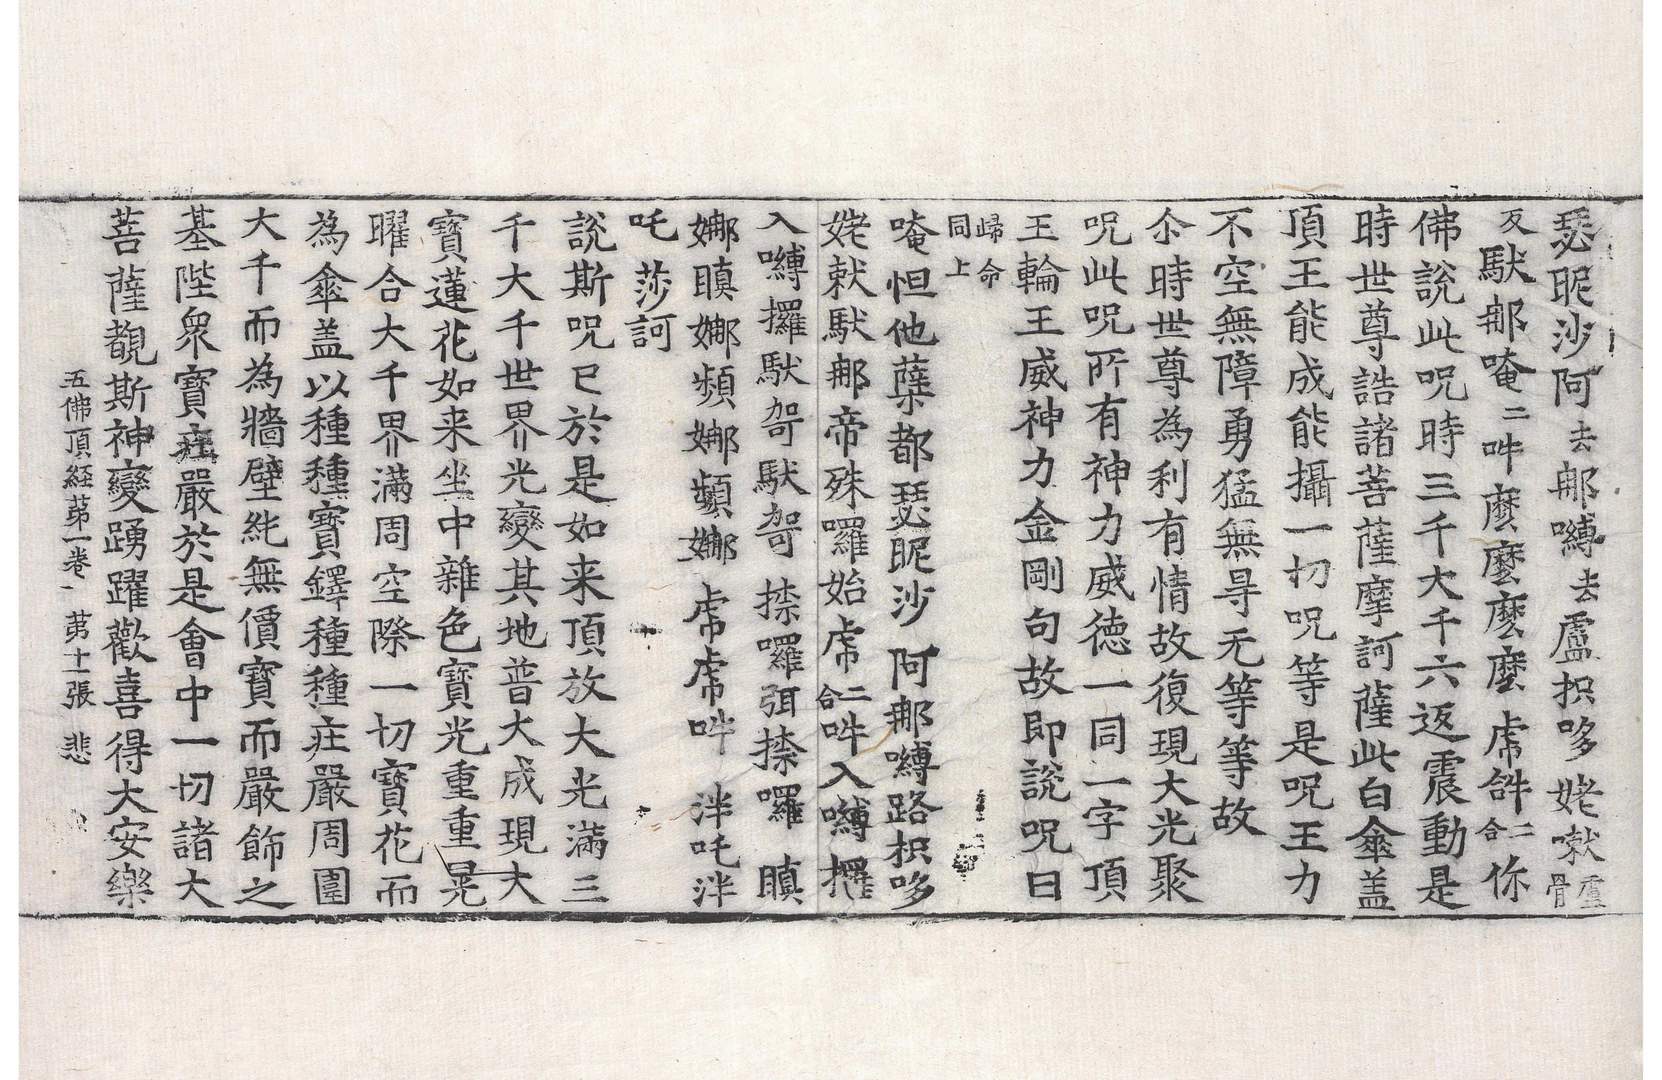 瑟昵沙阿去那嚩去盧抧哆姥嗽盧骨
反馱那唵二吽麼麼麼麼虎𤙖二合你
佛說此呪時三千大千六返震動是
時世尊誥諸菩薩摩訶薩此白傘盖
頂王能成能攝一切呪等是呪王力
不空無障勇猛無㝵无等等故
尒時世尊為利有情故復現大光聚
呪此呪所有神力威德一同一字頂
王輪王威神力金剛句故即說呪曰
歸命同上
唵怛他蘗都瑟昵沙阿那嚩路枳哆
姥㗚馱那帝殊囉始虎二合吽入嚩攞
入嚩攞馱哿馱哿捺囉弭捺囉瞋
娜瞋娜頻娜頻娜虎虎吽泮吒泮
吒莎訶
說斯呪已於是如来頂放大光滿三
千大千世界光變其地普大成現大
寶蓮花如来坐中雜色寶光重重晃
曜合大千界滿周空際一切寶花而
為傘盖以種種寶鐸種種庄嚴周圍
大千而為牆壁純無價寶而嚴飾之
基陛衆寶庄嚴於是會中一切諸大
菩薩覩斯神變踴躍歡喜得大安樂
五佛頂経苐一卷 苐十一張 悲